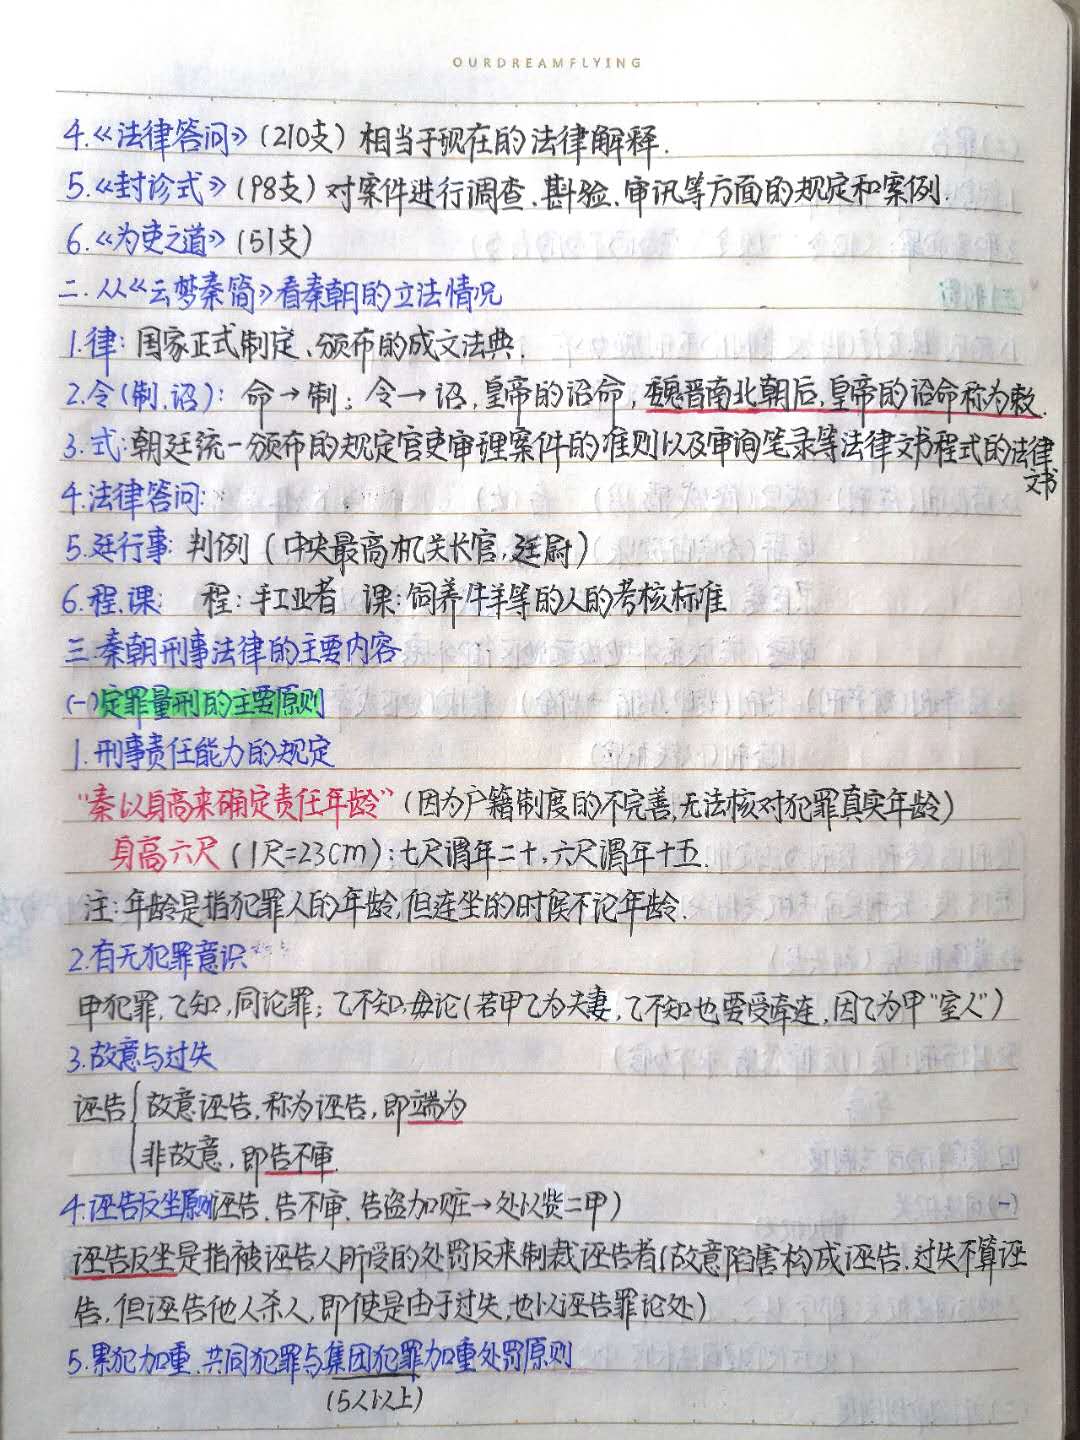 OURDREAMFLYING
4.《法律答问》(210支) 相当于现在的法律解释.
5.《封诊式》(98支) 对案件进行调查、斟验、审讯等方面的规定和案例.
6.《为吏之道》(51支)
二.从《云梦秦简》看秦朝的立法情况
1.律: 国家正式制定、颁布的成文法典.
2.令(制,诏): 命→制; 令→诏,皇帝的诏命, 魏晋南北朝后,皇帝的诏命称为敕.
3.式:朝廷统一颁布的规定官吏审理案件的准则以及审询笔录等法律文书程式的法律文书
4.法律答问:
5.廷行事: 判例 (中央最高机关长官,廷尉)
6.程.课: 程:手工业者 课:饲养牛羊等的人的考核标准
三.秦朝刑事法律的主要内容
(一)定罪量刑的主要原则
1.刑事责任能力的规定
"秦以身高来确定责任年龄"(因为户籍制度的不完善,无法核对犯罪真实年龄)
身高六尺 (1尺=23cm):七尺谓年二十,六尺谓年十五.
注:年龄是指犯罪人的年龄,但连坐的时候不论年龄.
2.有无犯罪意识
甲犯罪,乙知,同论罪; 乙不知,毋论(若甲乙为夫妻,乙不知也要受牵连,因乙为甲"室人")
3.故意与过失
诬告 故意诬告,称为诬告,即端为
非故意,即告不审.
4.诬告反坐原则(诬告、告不审、告盗加赃→处以赀二甲)
诬告反坐是指被诬告人所受的处罚反来制裁诬告者(故意陷害构成诬告,过失不算诬
告,但诬告他人杀人,即使是由于过失,也以诬告罪论处)
5.累犯加重、共同犯罪与集团犯罪加重处罚原则
(5人以上)